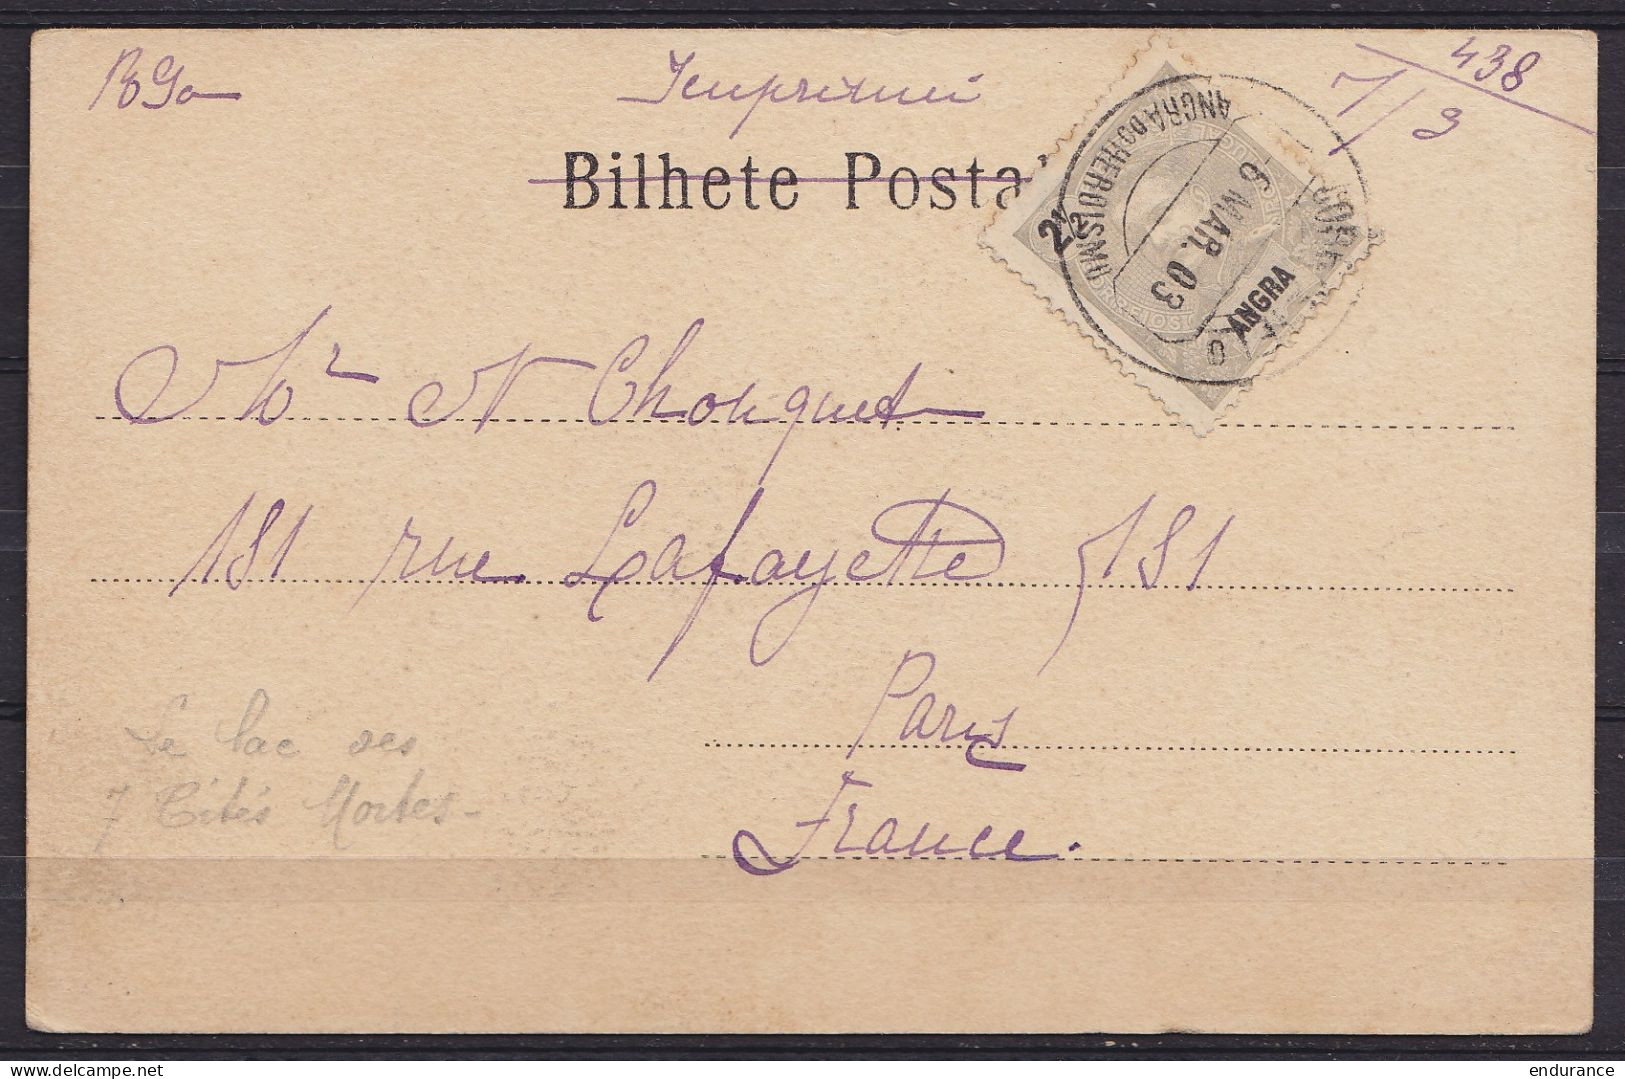 438
7/3
Imprimé
Bilhete Posta
2½
ANGRA DO HEROISMO
6 MAR. 03
CORRE
ANGRA
CORREIOS
Mr N Chouquet
181 rue Lafayette 181
Paris
France.
Le lac des
7 Cités Mortes -
delcampe.net
endurance